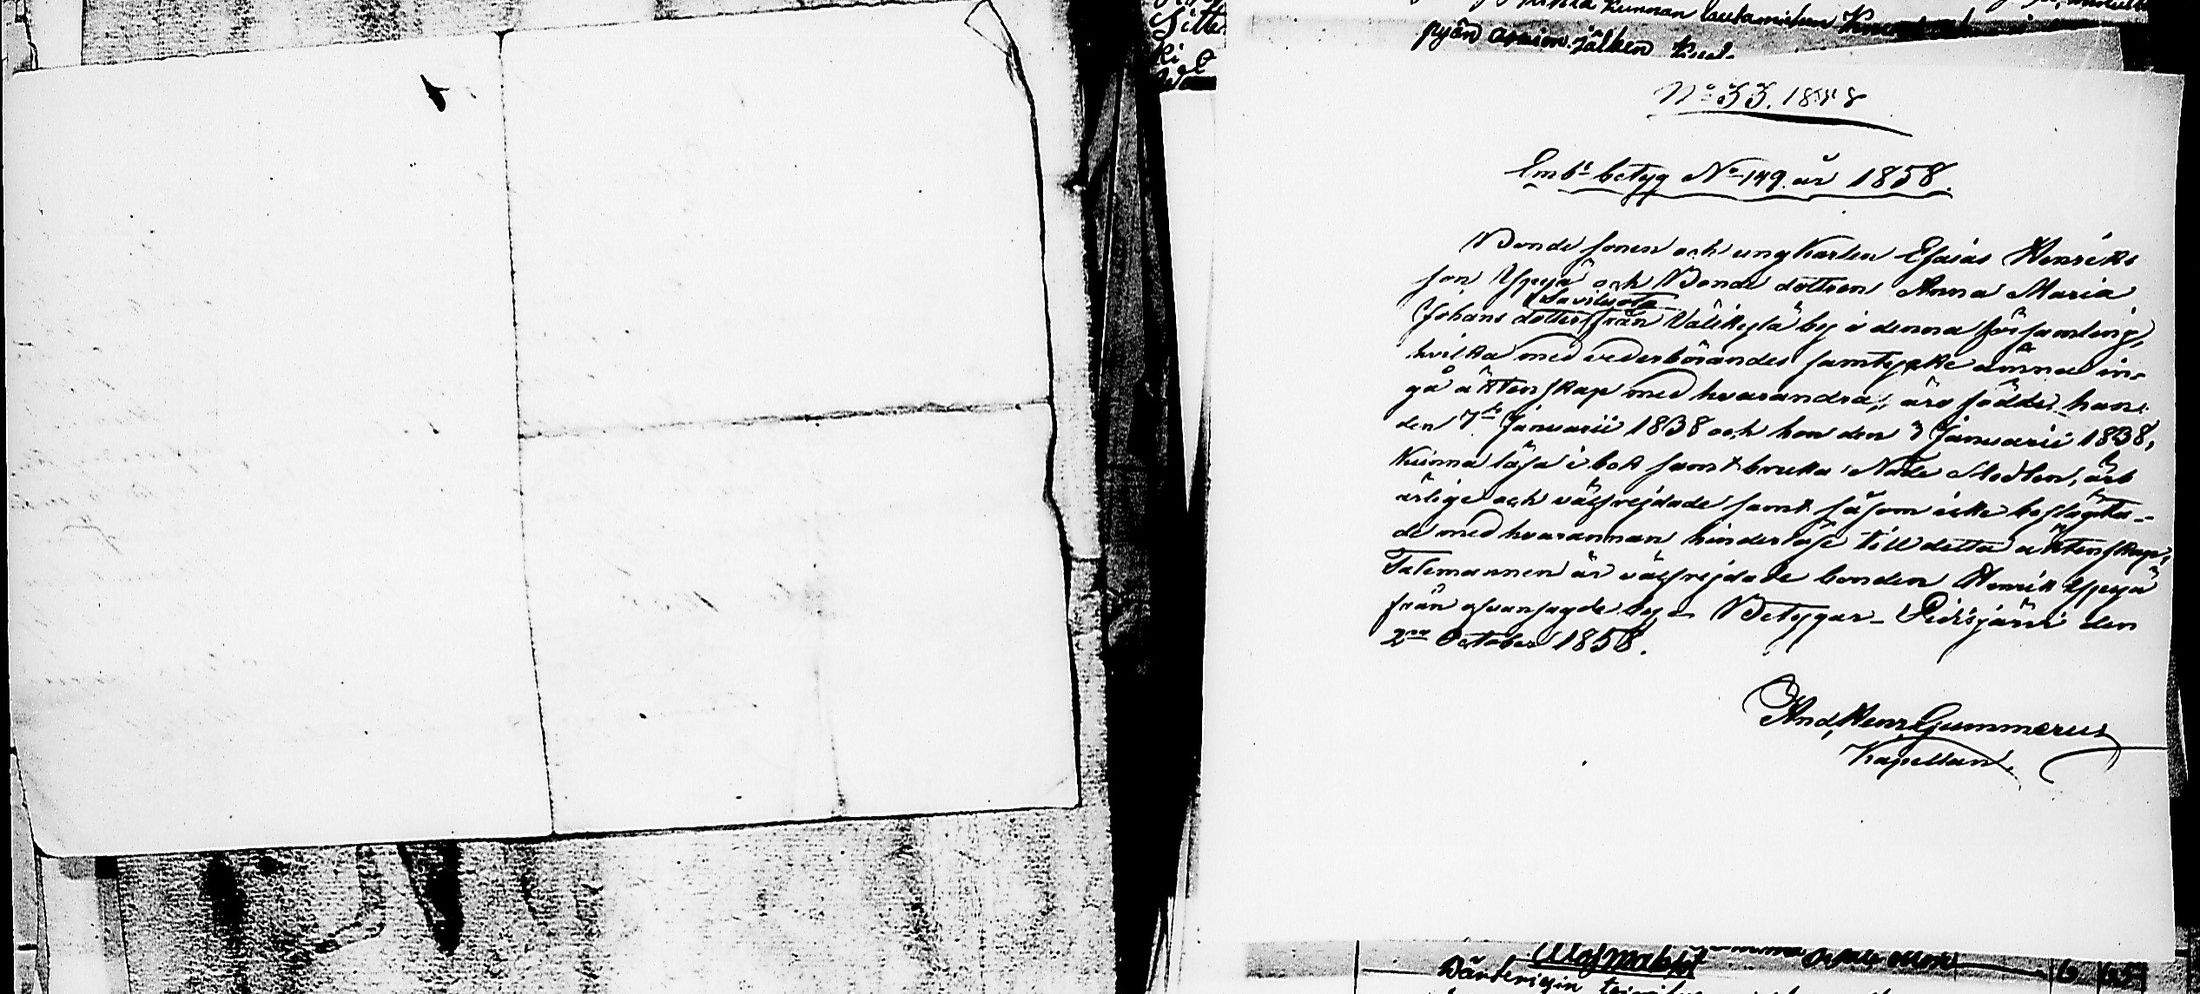 pyän asian jälken
No 33. 1858
Embts betyg No 149 år 1858.
Bonde sonen och ungkarlen Esaias Henriks
son Yppyä och Bonde dottren Anna Maria
Saviluoto
Johans dotter från Välikylä by i denna församling,
hvilka med vederbörandes samtycke ämna in-
gå äktenskap med hvarandra, äro födde han
den 7de Januarii 1838 och hon den 3 Januarii 1838,
kunna läsa i bok samt bruka Nåde Medlen, äro
ärlige och välfrejdade samt såsom icke beslägta-
de med hvarannan hinderlöse till detta äktenskap,
Talemannen är välfrejdade bonden Henrik Yppyä
från ofvansagde by - Betygar - Pidisjärvi den
2dra October 1858.
And, Henr Gummerus
Kapellan.